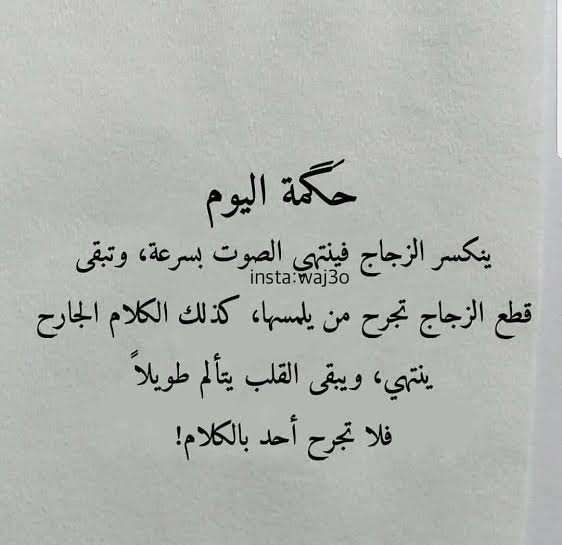 حكمة اليوم
ينكسر الزجاج فينتهي الصوت بسرعة، وتبقى
insta:waj3o
قطع الزجاج تجرح من يلمسها، كذلك الكلام الجارح
ينتهي، ويبقى القلب يتألم طويلاً
فلا تجرح أحد بالكلام!